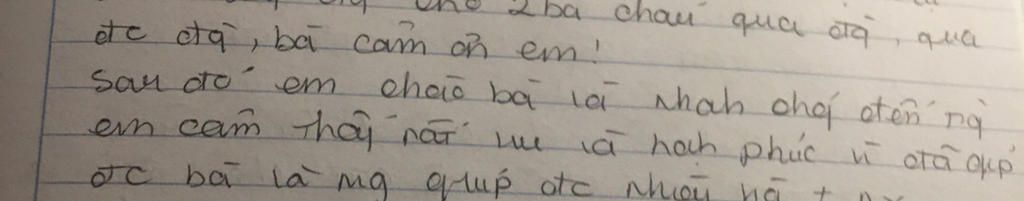 cho 2 bà cháu qua đg, qua
đc đg, bà cảm ơn em!
Sau đó em chào bà và nhah chạy đến ng
em cảm thấy rất vui và hạnh phúc vì đã giúp
đc bà và mg giúp đc nhiều